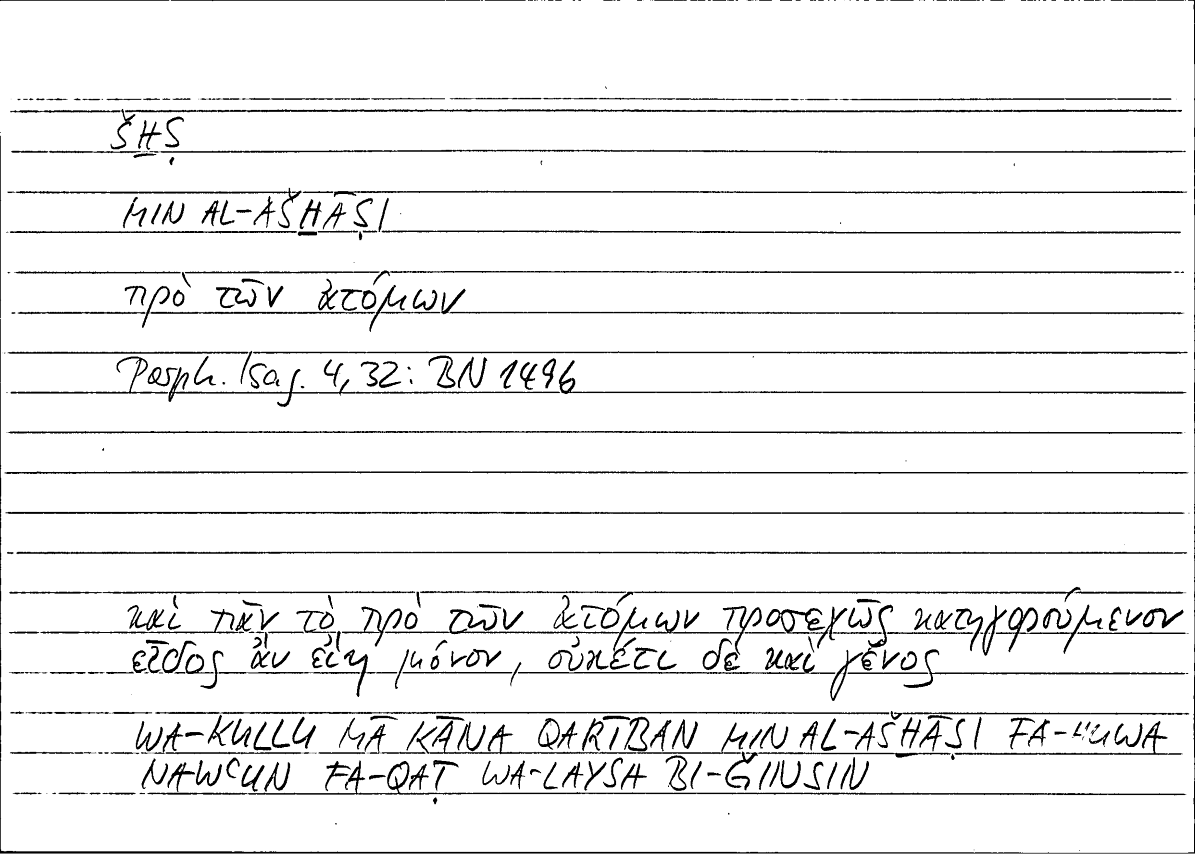 ŠḪṢ
MIN AL-AŠḪĀṢI
πρὸ τῶν ἀτόμων
Porph. Isag. 4, 32: BN 1496
καὶ πᾶν τὸ πρὸ τῶν ἀτόμων προσεχῶς κατηγορούμενον
εἶδος ἂν εἴη μόνον, οὐκέτι δὲ καὶ γένος
WA-KULLU MĀ KĀNA QARĪBAN MIN AL-AŠḪĀṢI FA-HUWA
NAWʿUN FA-QAṬ WA-LAYSA BI-ǦIINSIN